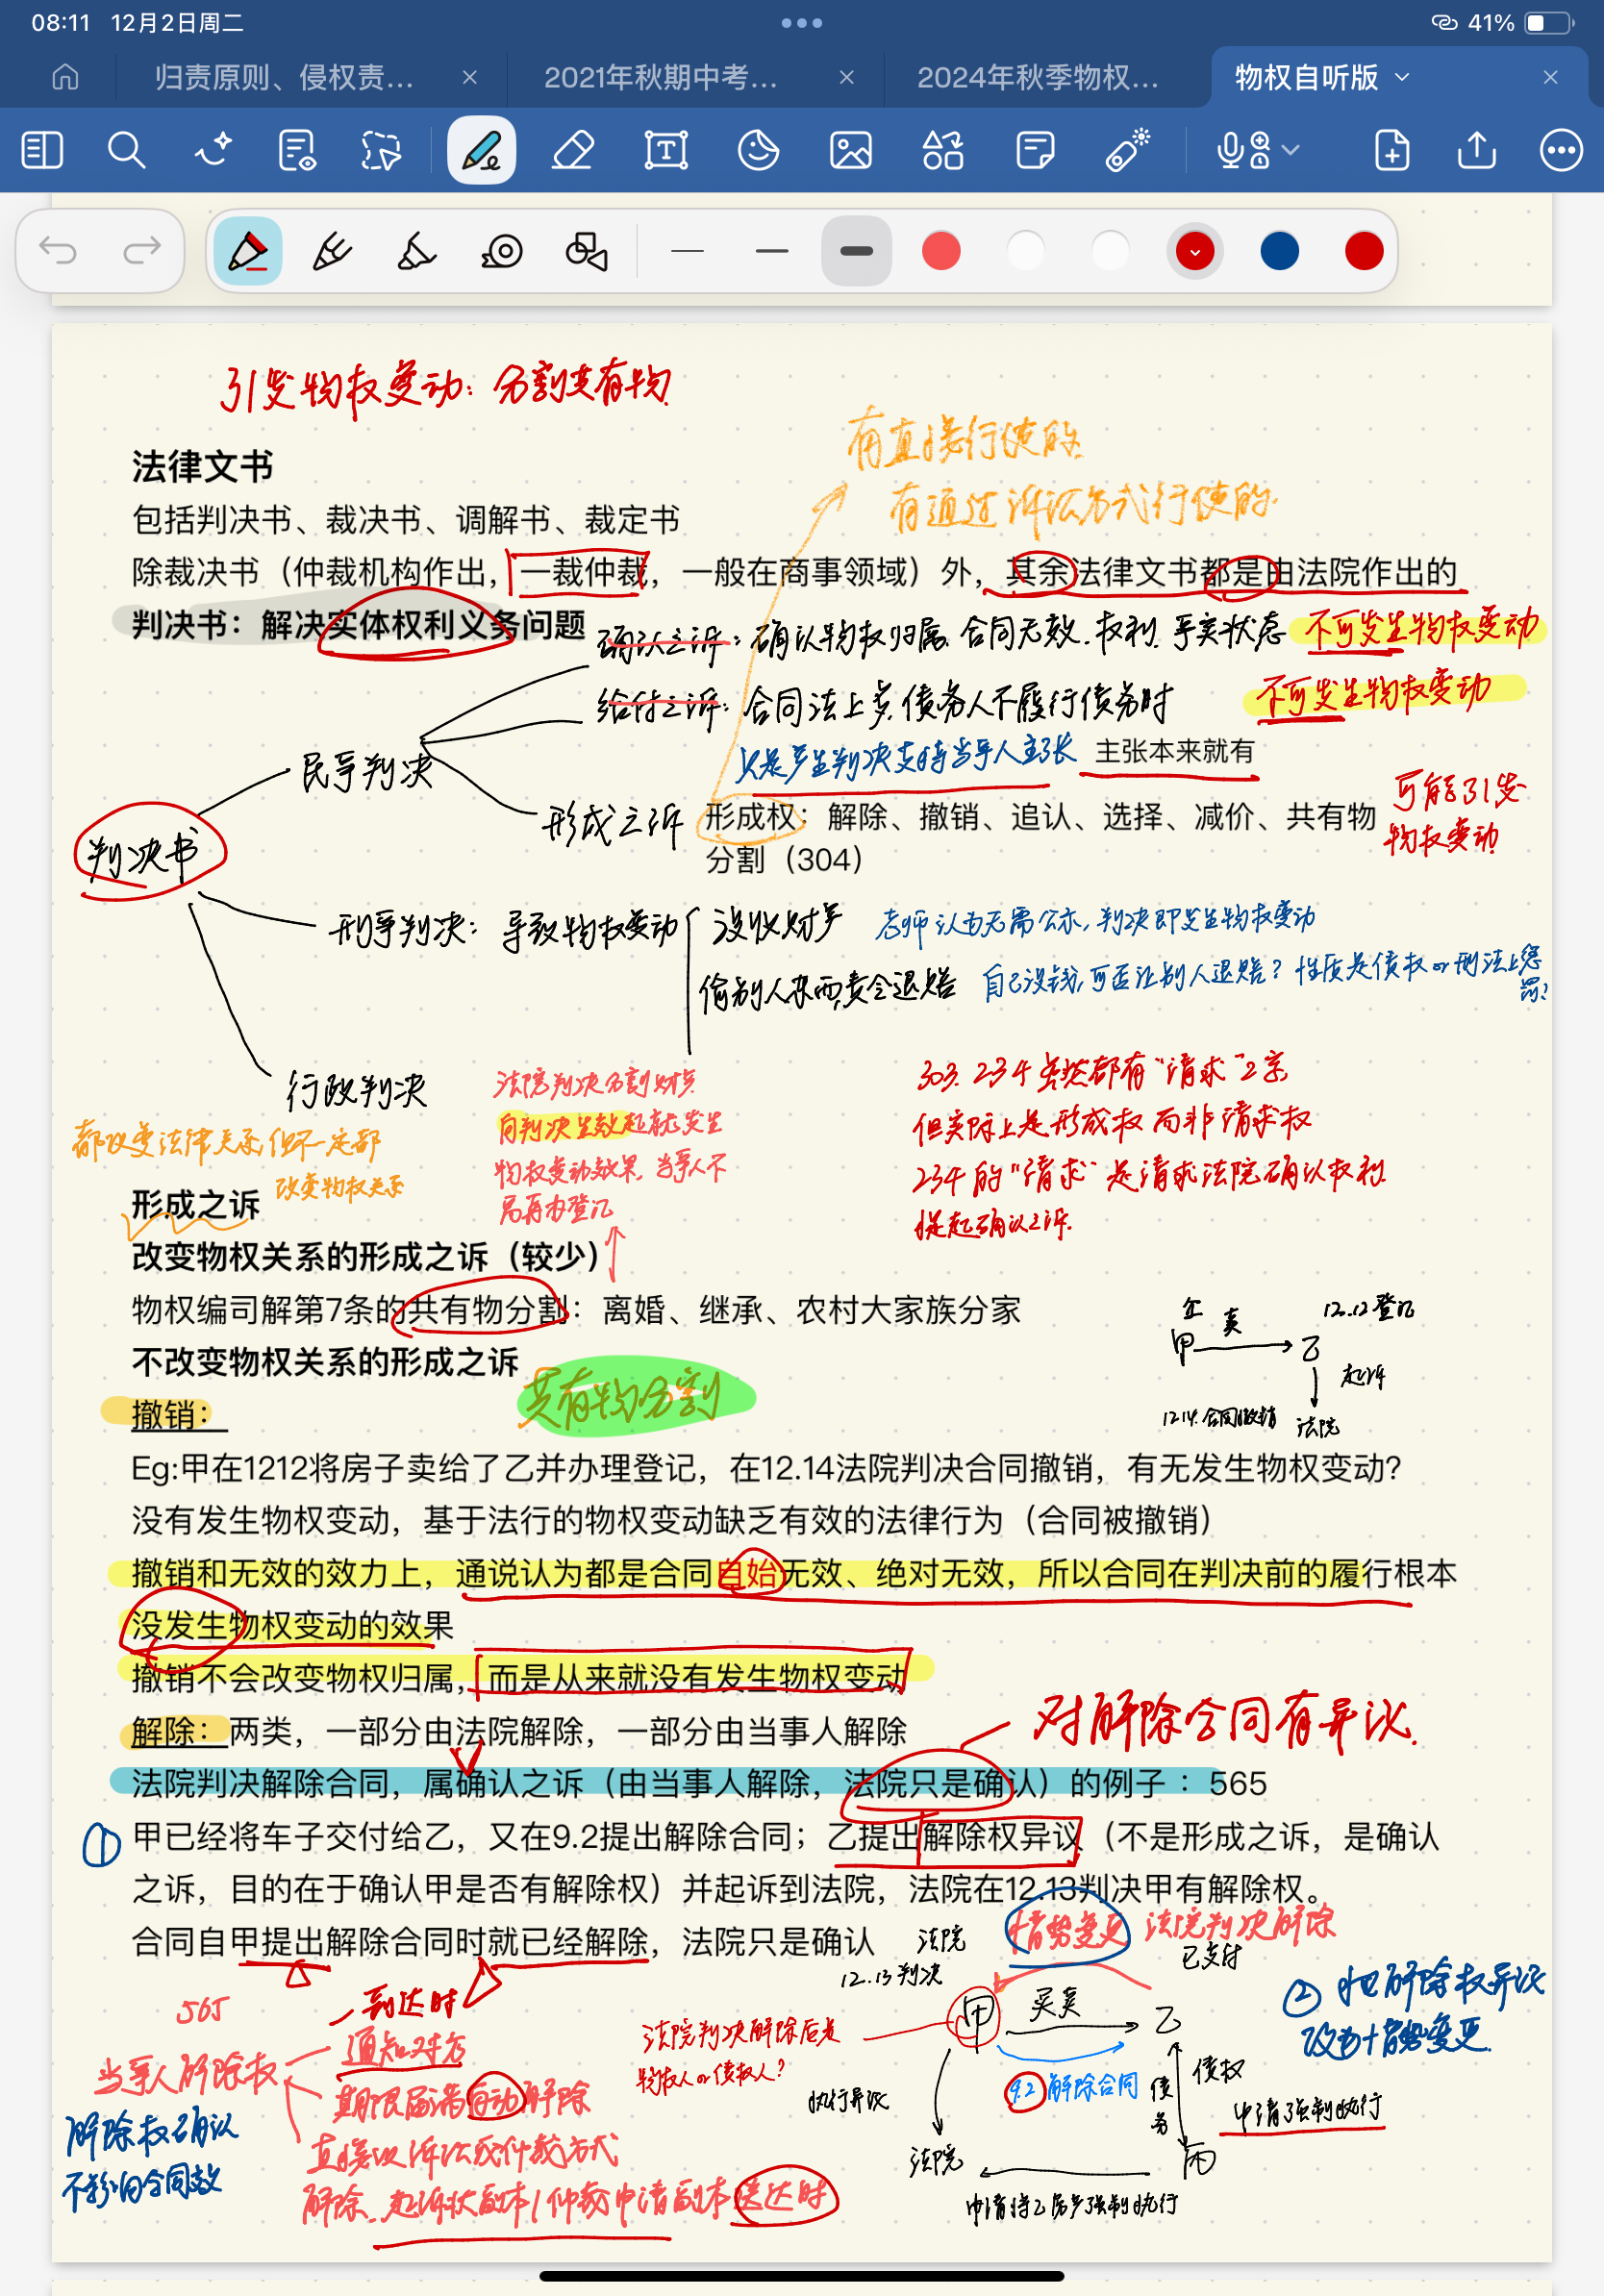 08:11 12月2日周二
41%
归责原则、侵权责...
2021年秋期中考...
2024年秋季物权...
物权自听版
引发物权变动：分割共有物
有直接行使的
有通过诉讼方式行使的
法律文书
包括判决书、裁决书、调解书、裁定书
除裁决书（仲裁机构作出，一裁仲裁，一般在商事领域）外，其余法律文书都是由法院作出的
判决书：解决实体权利义务问题
确认之诉：确认物权归属、合同无效、权利、事实状态 不可发生物权变动
给付之诉：合同法上多，债务人不履行债务时 不可发生物权变动
民事判决
只是产生判决支持当事人主张 主张本来就有
形成之诉 形成权：解除、撤销、追认、选择、减价、共有物
分割（304）
可能引发
物权变动
判决书
刑事判决：导致物权变动
没收财产 老师认为无需公示，判决即发生物权变动
偷别人东西，责令退赔 自己没钱，可否让别人退赔？性质是债权or刑法上惩
罚？
行政判决
法院判决分割财产
自判决生效起就发生
物权变动效果，当事人不
另再办登记
303、234虽然都有“请求”2字
但实际上是形成权而非请求权
234的“请求”是请求法院确认权利
提起确认之诉.
都改变法律关系，但不一定都
改变物权关系
形成之诉
改变物权关系的形成之诉（较少）
物权编司解第7条的共有物分割：离婚、继承、农村大家族分家
不改变物权关系的形成之诉
共有物分割
甲 卖 乙 12.12登记
起诉
12.14.合同撤销 法院
撤销：
Eg:甲在1212将房子卖给了乙并办理登记，在12.14法院判决合同撤销，有无发生物权变动？
没有发生物权变动，基于法行的物权变动缺乏有效的法律行为（合同被撤销）
撤销和无效的效力上，通说认为都是合同自始无效、绝对无效，所以合同在判决前的履行根本
没发生物权变动的效果
撤销不会改变物权归属，而是从来就没有发生物权变动
解除：两类，一部分由法院解除，一部分由当事人解除
对解除合同有异议.
法院判决解除合同，属确认之诉（由当事人解除，法院只是确认）的例子：565
① 甲已经将车子交付给乙，又在9.2提出解除合同；乙提出解除权异议（不是形成之诉，是确认
之诉，目的在于确认甲是否有解除权）并起诉到法院，法院在12.13判决甲有解除权。
合同自甲提出解除合同时就已经解除，法院只是确认
法院
12.13判决
情势变更 法院判决解除
已交付
② 把解除权异议
改为情势变更.
565
到达时
当事人解除权
通知对方
期限届满自动解除
直接以诉讼或仲裁方式
解除、起诉状副本/仲裁申请副本送达时
解除权确认
不影响合同效
法院判决解除后是
物权人or债权人？
甲 买卖 乙
9.2 解除合同
执行异议
债务
债权
申请强制执行
法院
丙
申请将乙房产强制执行